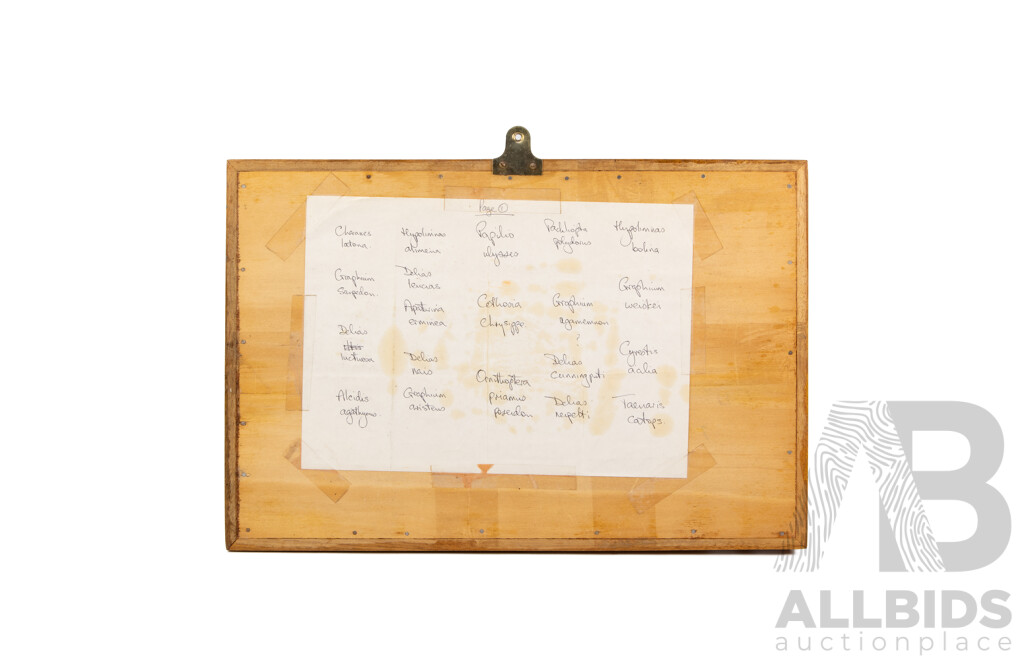 Page ①
Charaxes
latona.
Hypolimnas
alimena
Papilio
ulysses
Pachliopta
polydorus
Hypolimnas
bolina
Graphium
sarpedon.
Delias
Graphium
weiskei
Apaturina
erminea
Cethosia
chrysippe
Graphium
agamemnon
Delias
luctuosa
Delias
nais
Delias
Cyrestis
acilia
Alcides
agathyrsus
Graphium
aristeus
Ornithoptera
priamus
poseidon.
Delias
Taenaris
catops.
ALLBIDS
auctionplace